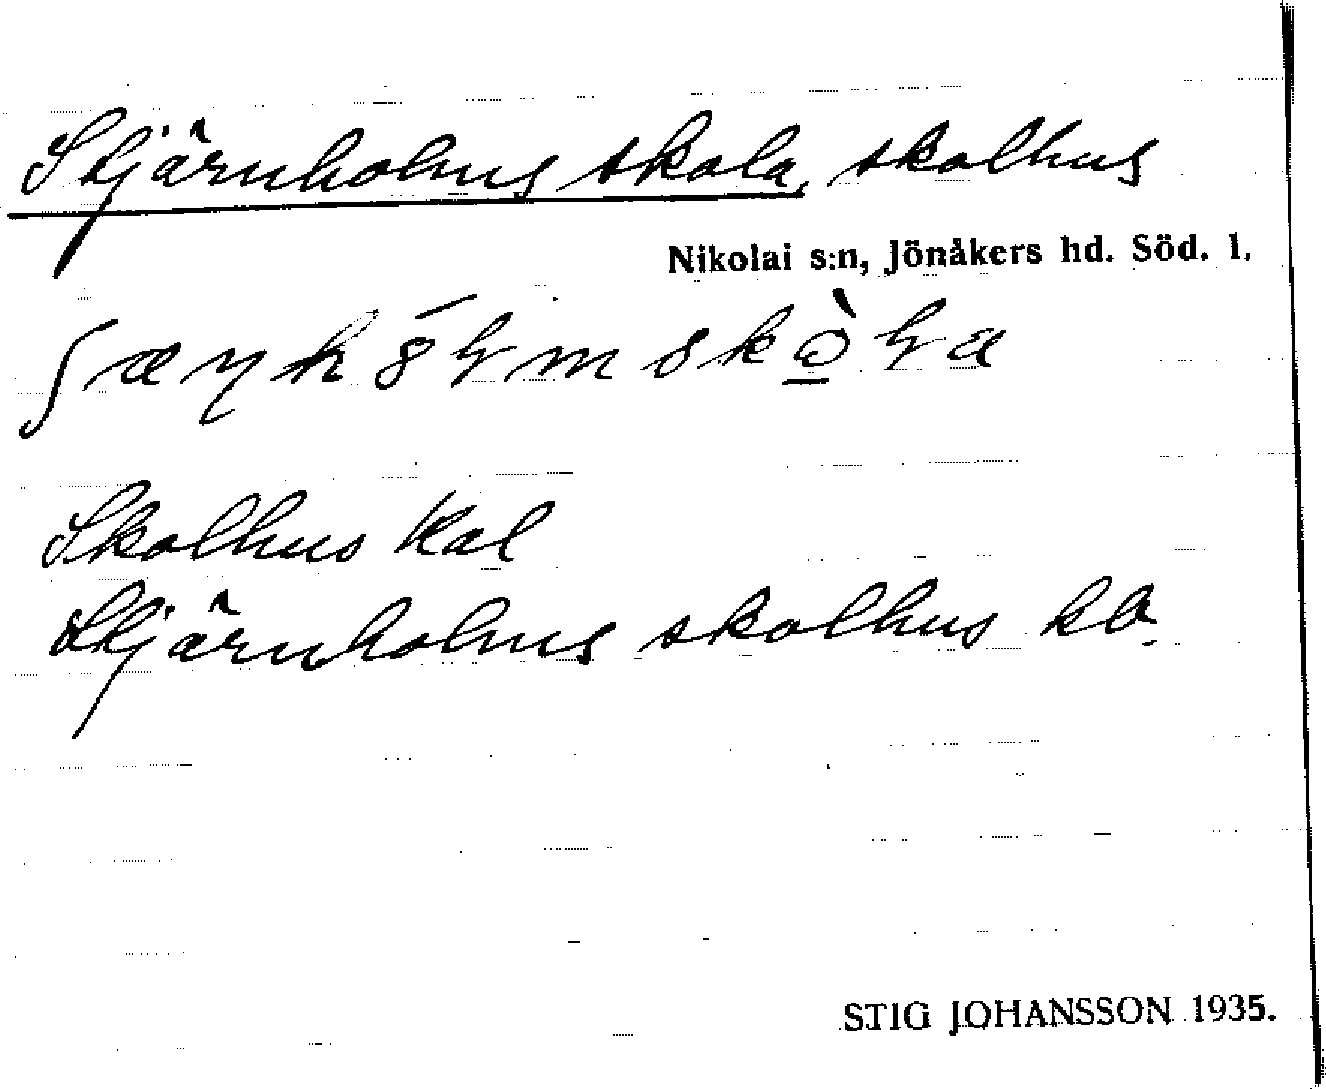 Stjärnholms skola, skolhus
Nikolai s:n, Jönåkers hd. Söd. l.
Skolhus Kal
Stjärnholms skolhus kb.
STIG JOHANSSON 1935.